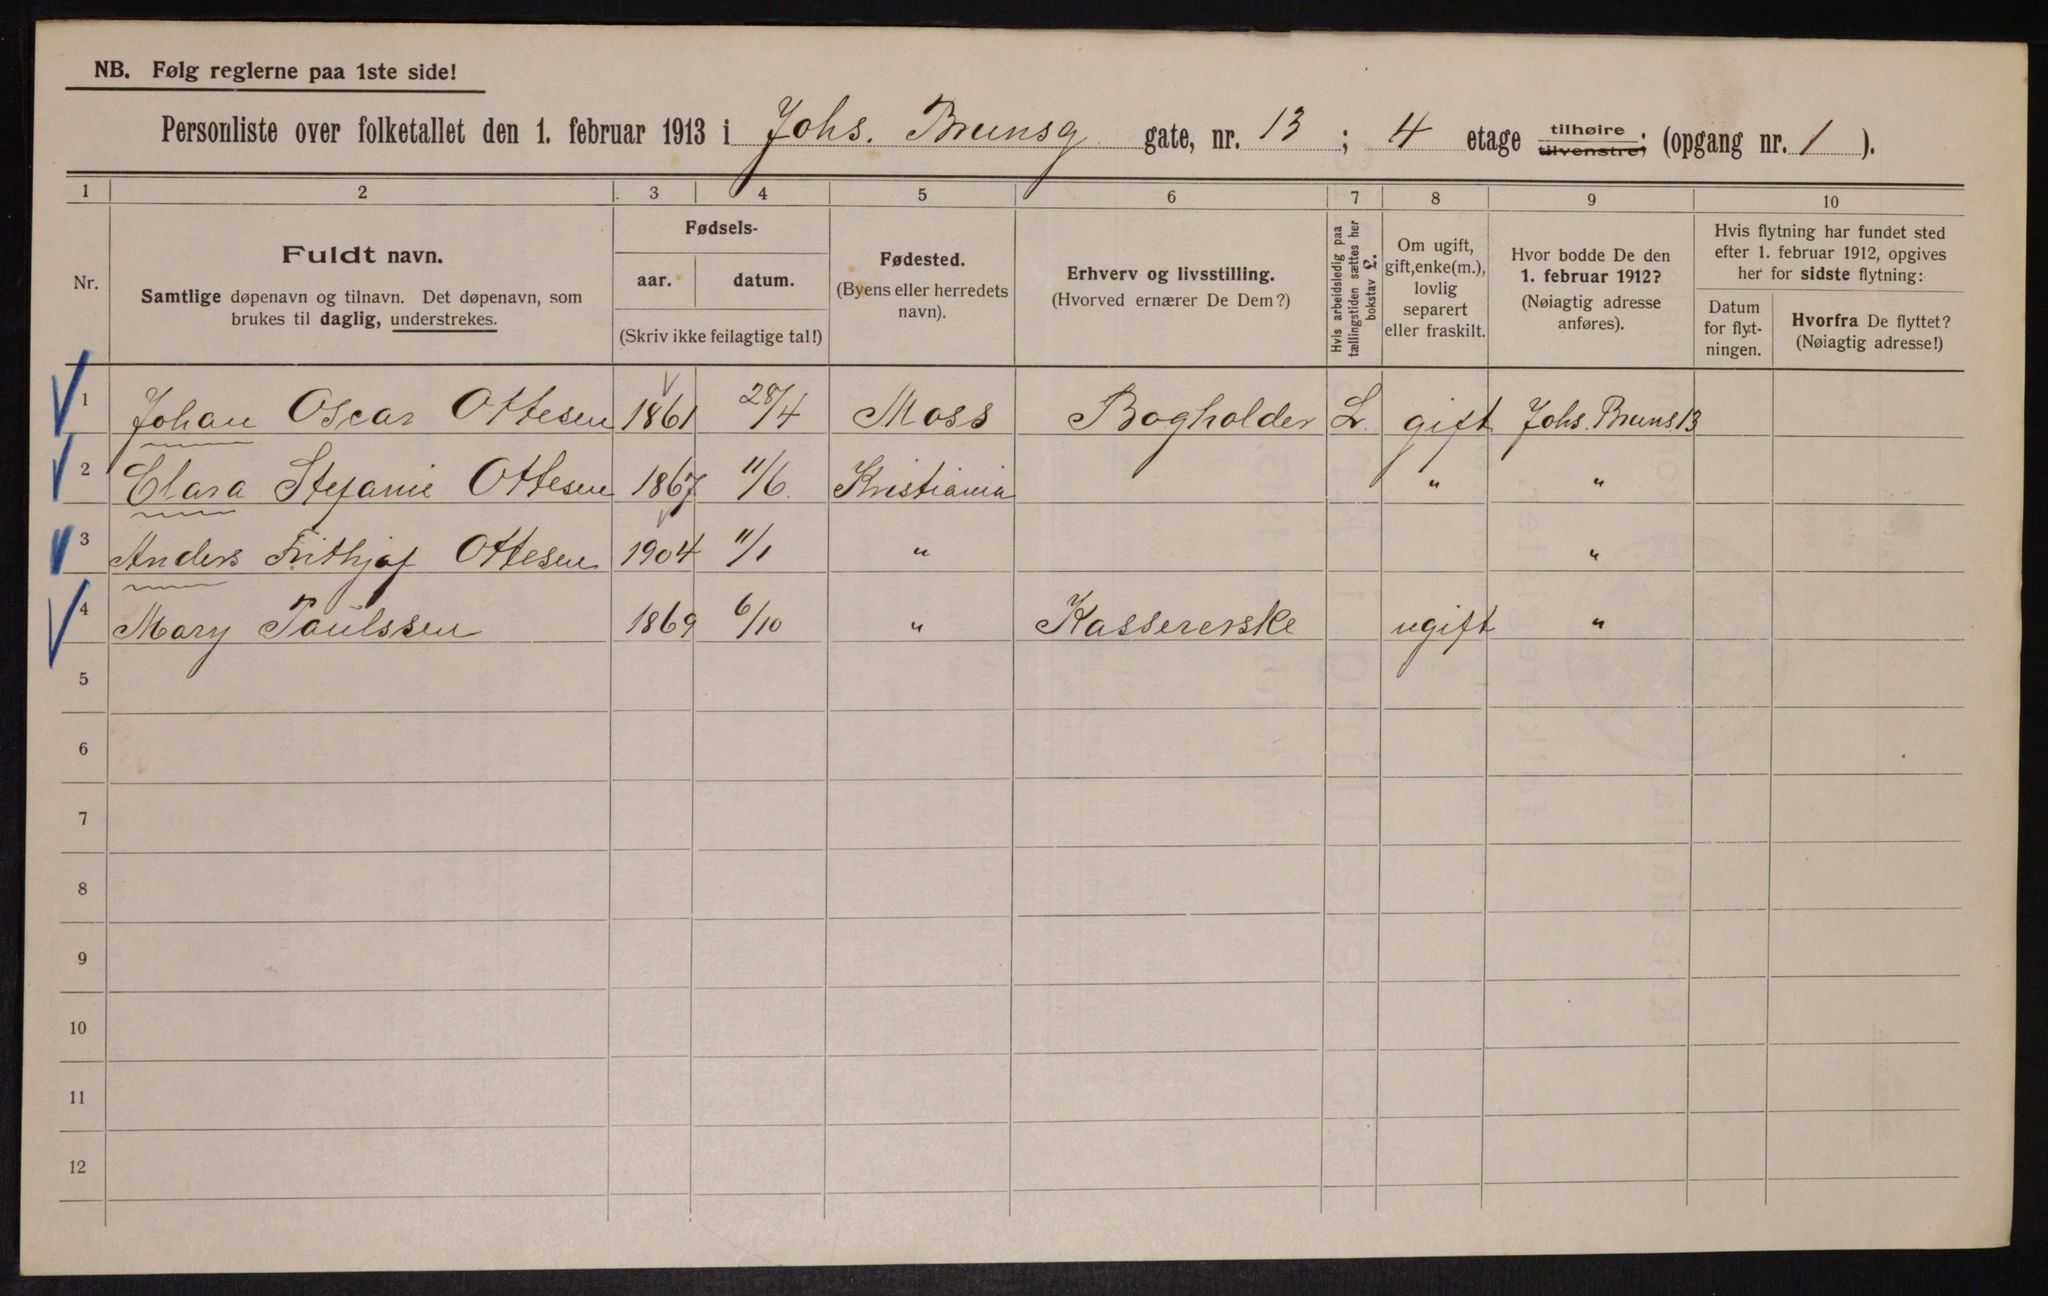 NB. Følg reglerne paa 1ste side!
Personliste over folketallet den 1. februar 1913 i Johs. Brunsg gate, nr. 13 ; 4 etage tilhøire tilvenstre; (opgang nr. 1 ).
1 2 3 4 5 6 7 8 9 10
Nr.
Fuldt navn.
Samtlige døpenavn og tilnavn. Det døpenavn, som
brukes til daglig, understrekes.
Fødsels-
aar. datum.
(Skriv ikke feilagtige tal!)
Fødested.
(Byens eller herredets
navn).
Erhverv og livsstilling.
(Hvorved ernærer De Dem?)
Hvis arbeidsledig paa
tællingstiden sættes her
bokstav L.
Om ugift,
gift, enke(m.),
lovlig
separert
eller fraskilt.
Hvor bodde De den
1. februar 1912?
(Nøiagtig adresse
anføres).
Hvis flytning har fundet sted
efter 1. februar 1912, opgives
her for sidste flytning:
Datum
for flyt-
ningen.
Hvorfra De flyttet?
(Nøiagtig adresse!)
1 Johan Oscar Ottesen 1861 28/4 Moss Bogholder L. gift Johs. Bruns 13
2 Clara Stefanie Ottesen 1867 11/6. Kristiania " "
3 Anders Frithjof Ottesen 1904 11/1 " "
4 Mary Paulssen 1869 6/10 " Kassererske ugift "
5
6
7
8
9
10
11
12